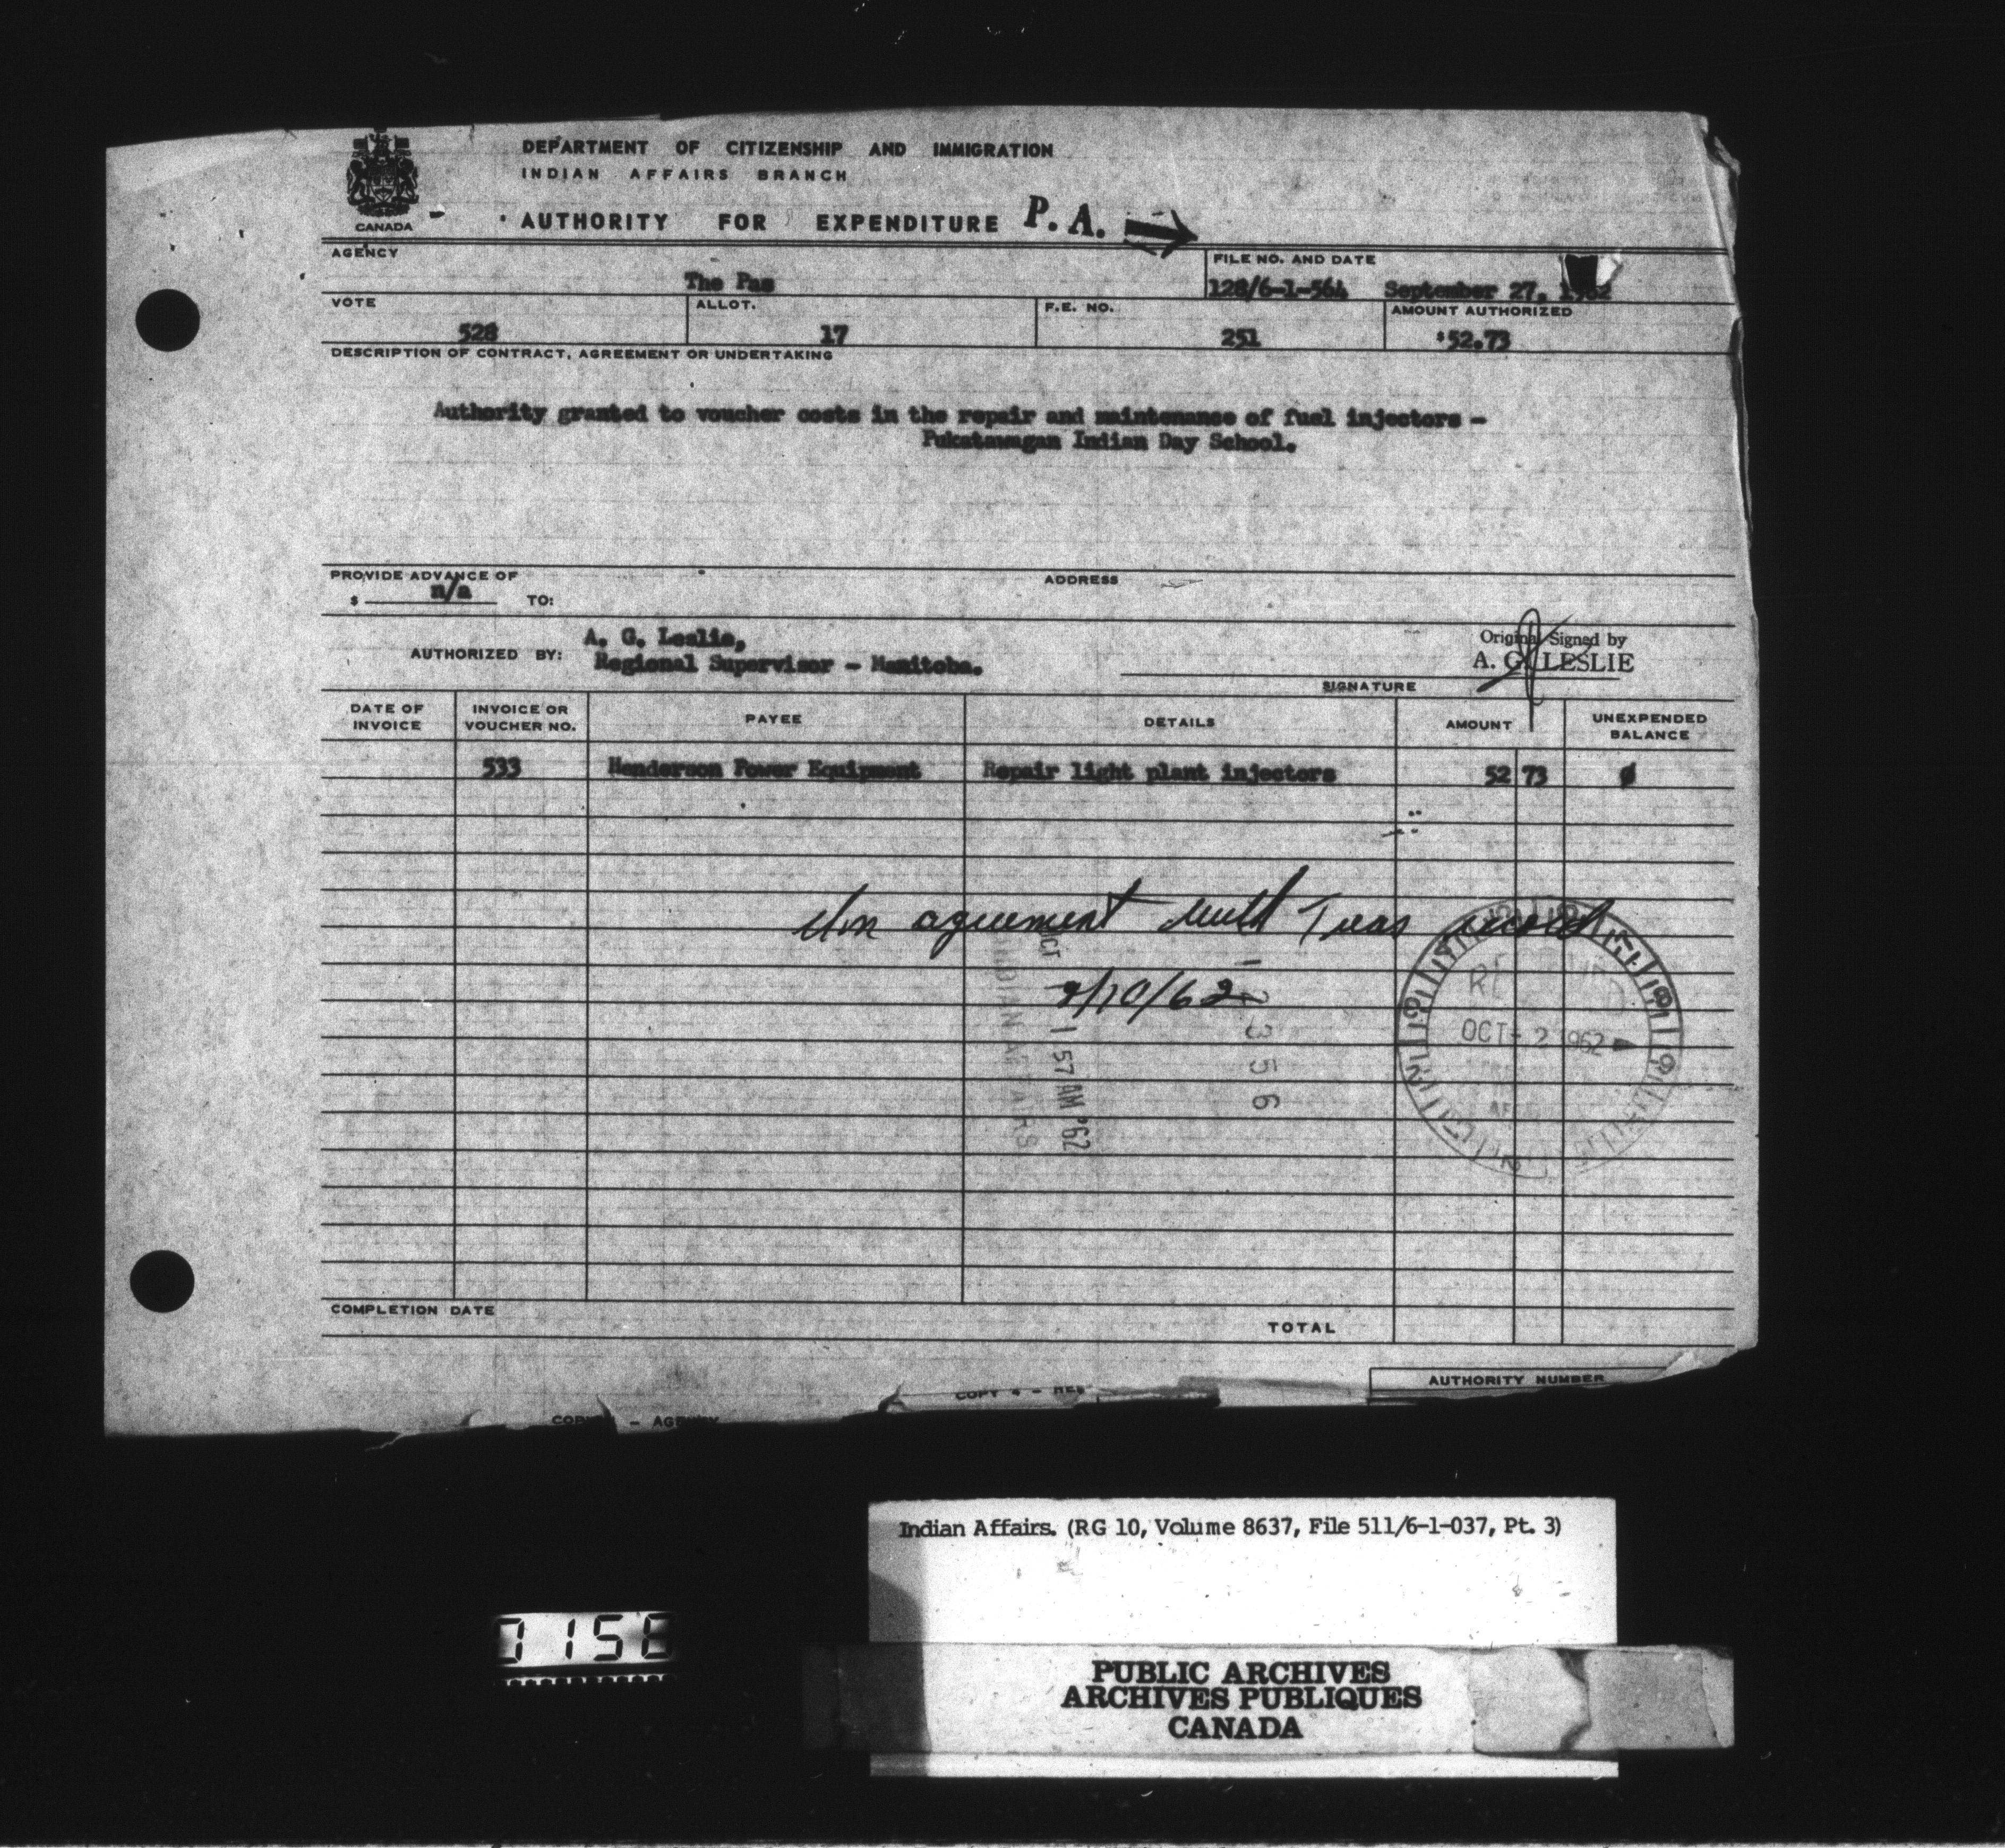 DEPARTMENT OF CITIZENSHIP AND IMMIGRATION
INDIAN AFFAIRS BRANCH
AUTHORITY FOR EXPENDITURE P.A.
CANADA
AGENCY
The Pas
FILE NO. AND DATE
128/6-1-564 September 27, 1962
VOTE
528
ALLOT.
17
F.E. NO.
251
AMOUNT AUTHORIZED
$52.73
DESCRIPTION OF CONTRACT, AGREEMENT OR UNDERTAKING
Authority granted to voucher costs in the repair and maintenance of fuel injectors -
Pukatawagan Indian Day School.
PROVIDE ADVANCE OF
$ n/a TO:
ADDRESS
AUTHORIZED BY:
A. G. Leslie,
Regional Supervisor - Manitoba.
Original Signed by
A. G. LESLIE
SIGNATURE
DATE OF INVOICE
INVOICE OR VOUCHER NO.
PAYEE
DETAILS
AMOUNT
UNEXPENDED BALANCE
533 Henderson Power Equipment Repair light plant injectors 52 73 ø
In agreement with Treas record
2/10/62
OCT 1 57 AM '62
INDIAN AFFAIRS
12356
OCT - 2 1962
COMPLETION DATE
TOTAL
AUTHORITY NUMBER
COPY 4 -
COPY - AGENCY
Indian Affairs. (RG 10, Volume 8637, File 511/6-1-037, Pt. 3)
PUBLIC ARCHIVES
ARCHIVES PUBLIQUES
CANADA